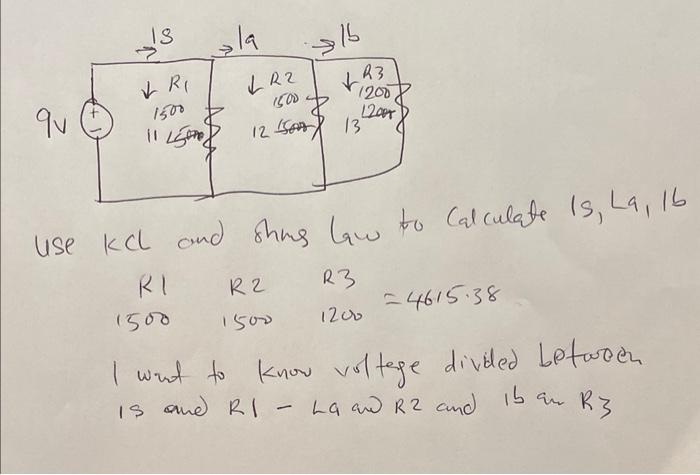 IS Ia Ib
R1 R2 R3
1500 1500 1200
9v + I1 1500 I2 1500 I3 1200
−
use KCL and Ohms Law to Calculate IS, Ia, Ib
R1 R2 R3
1500 1500 1200 = 4615.38
I want to know voltege divided between
IS and R1 - Ia and R2 and Ib an R3